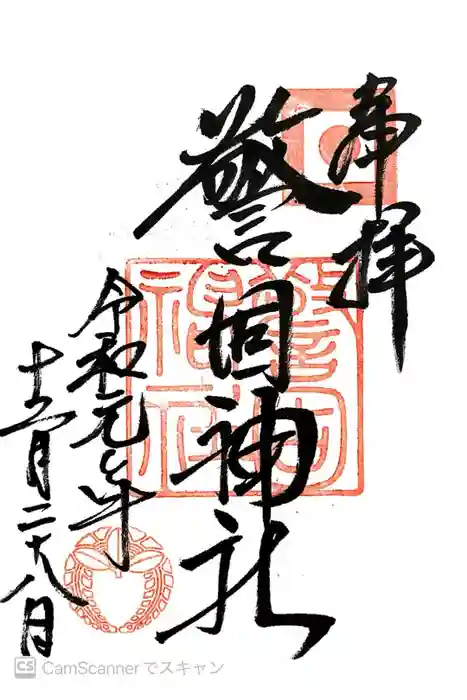 奉拝
警固神社
令和元年
十二月二十八日
警固神社
CS CamScannerでスキャン